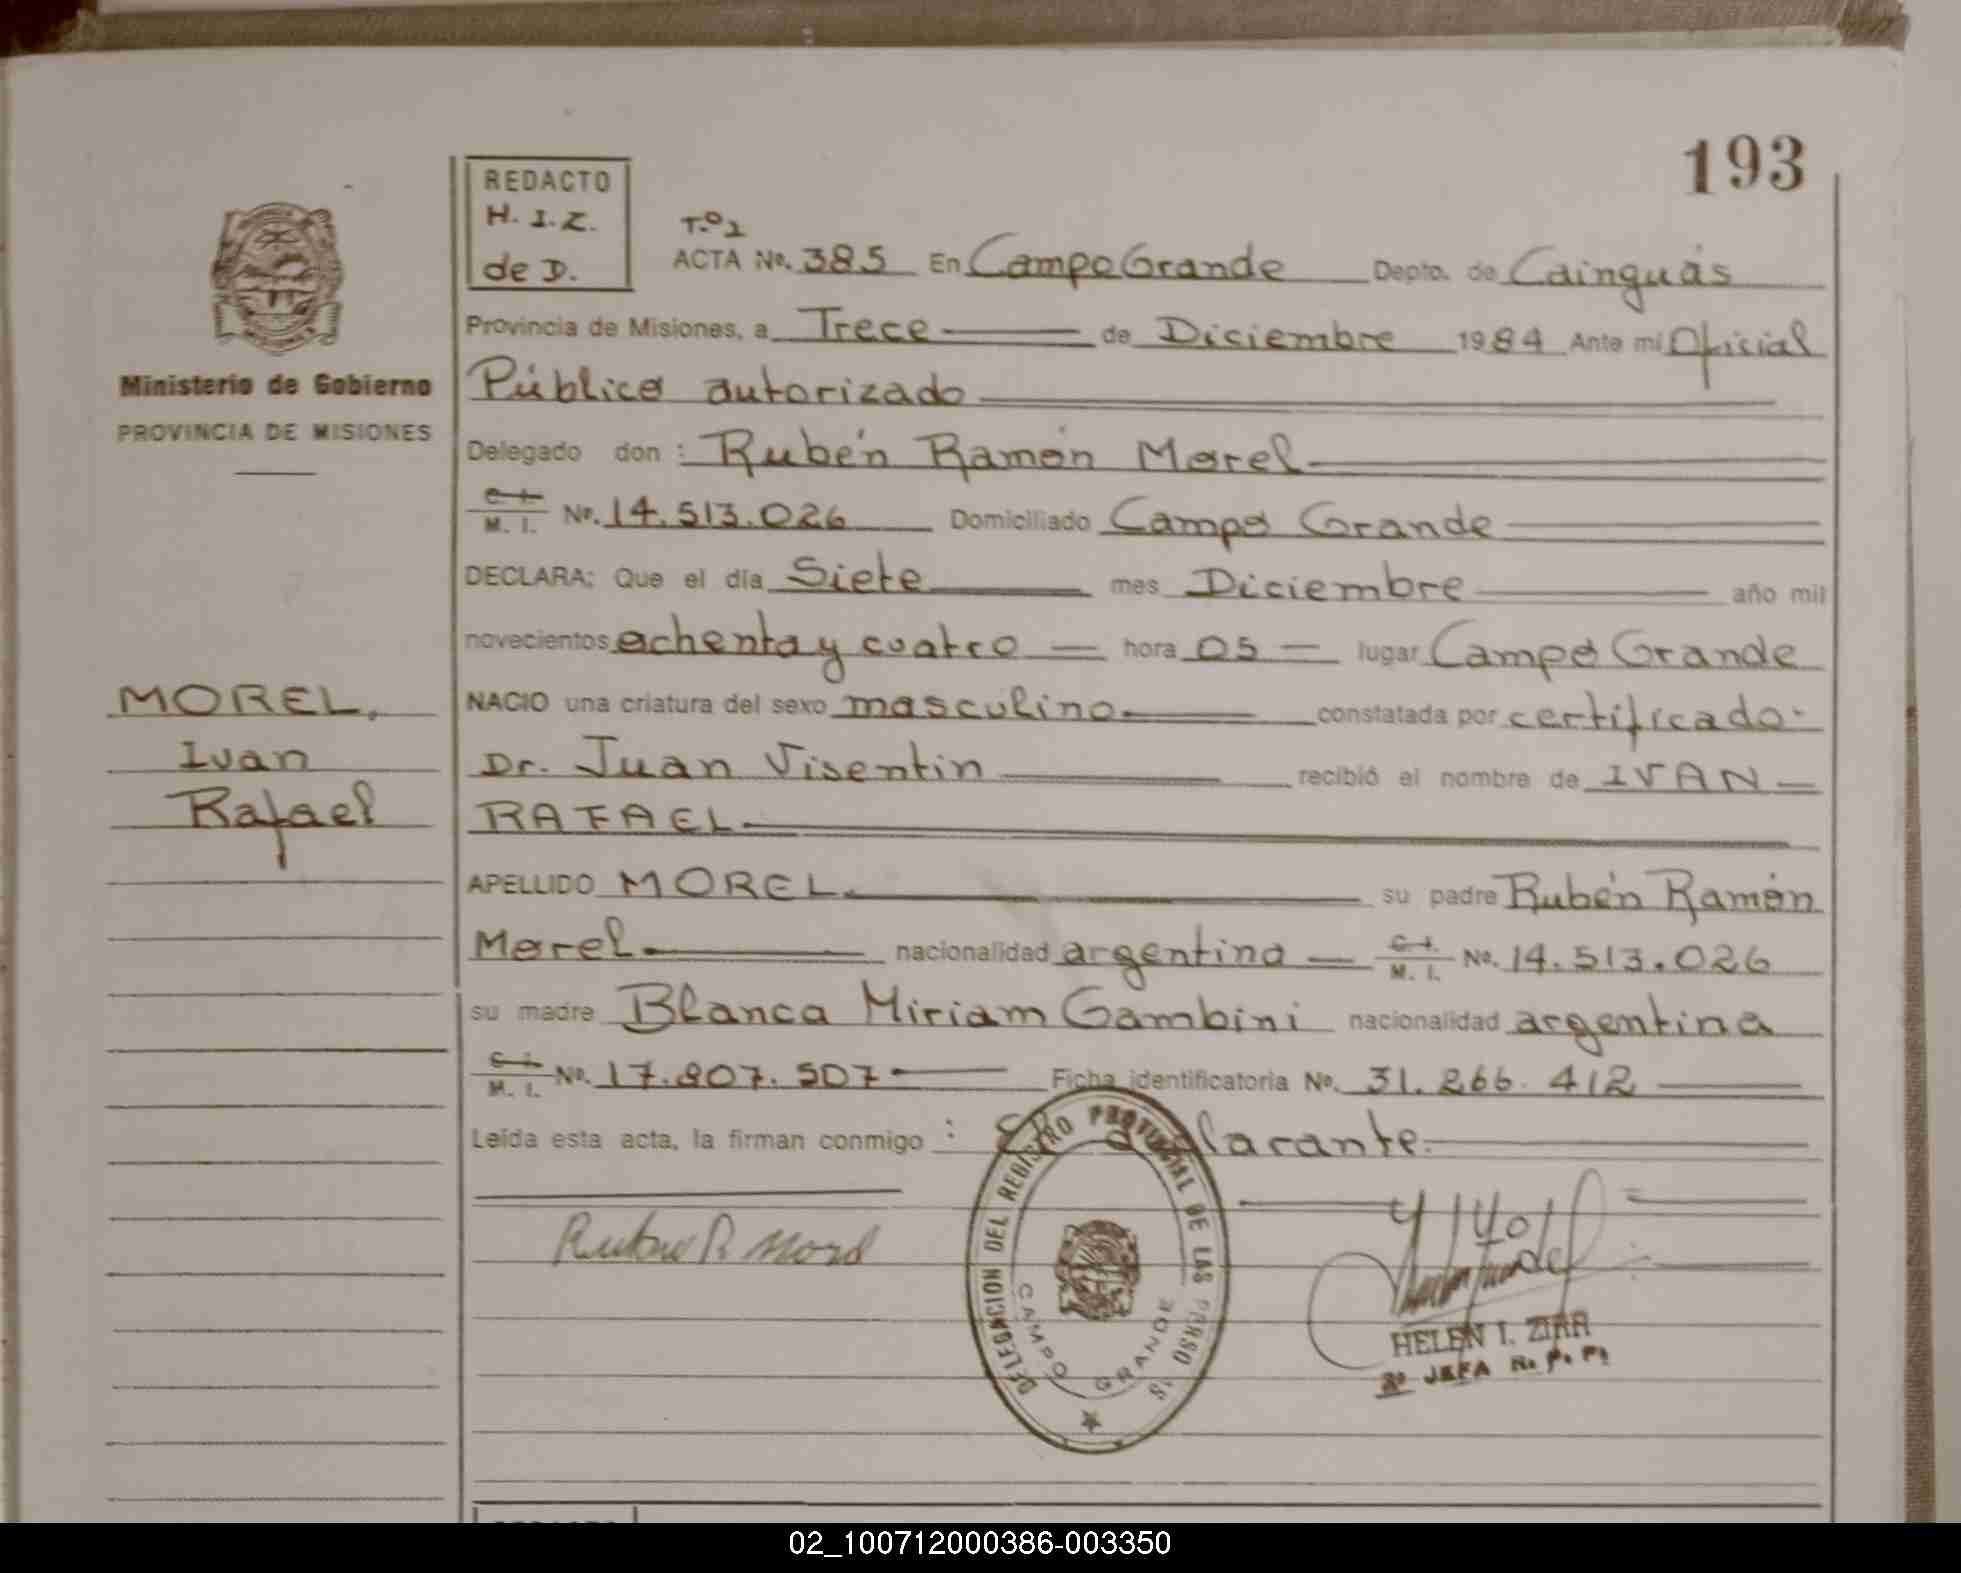 193
REDACTO
H. I. Z.
de D.
T.º 1
ACTA No. 385 En Campo Grande Depto. de Cainguás
Provincia de Misiones, a Trece de Diciembre 1984 Ante mi Oficial
Público autorizado
Ministerio de Gobierno
PROVINCIA DE MISIONES
Delegado don : Rubén Ramón Morel
C. I.
M. I. No. 14.513.026 Domiciliado Campo Grande
DECLARA: Que el día Siete mes Diciembre año mil
novecientos ochenta y cuatro hora 05 lugar Campo Grande
MOREL,
Ivan
Rafael
NACIO una criatura del sexo masculino constatada por certificado
Dr. Juan Visentin recibió el nombre de IVAN
RAFAEL
APELLIDO MOREL su padre Rubén Ramón
Morel nacionalidad argentina C. I. M. I. No. 14.513.026
su madre Blanca Miriam Gambini nacionalidad argentina
C. I. M. I. No. 17.807.507 Ficha identificatoria No. 31.266.412
Leída esta acta, la firman conmigo :
DELEGACION DEL REGISTRO PROVINCIAL DE LAS PERSO
CAMPO GRANDE
HELEN I. ZIRR
JEFA R. P. P.
02_100712000386-003350